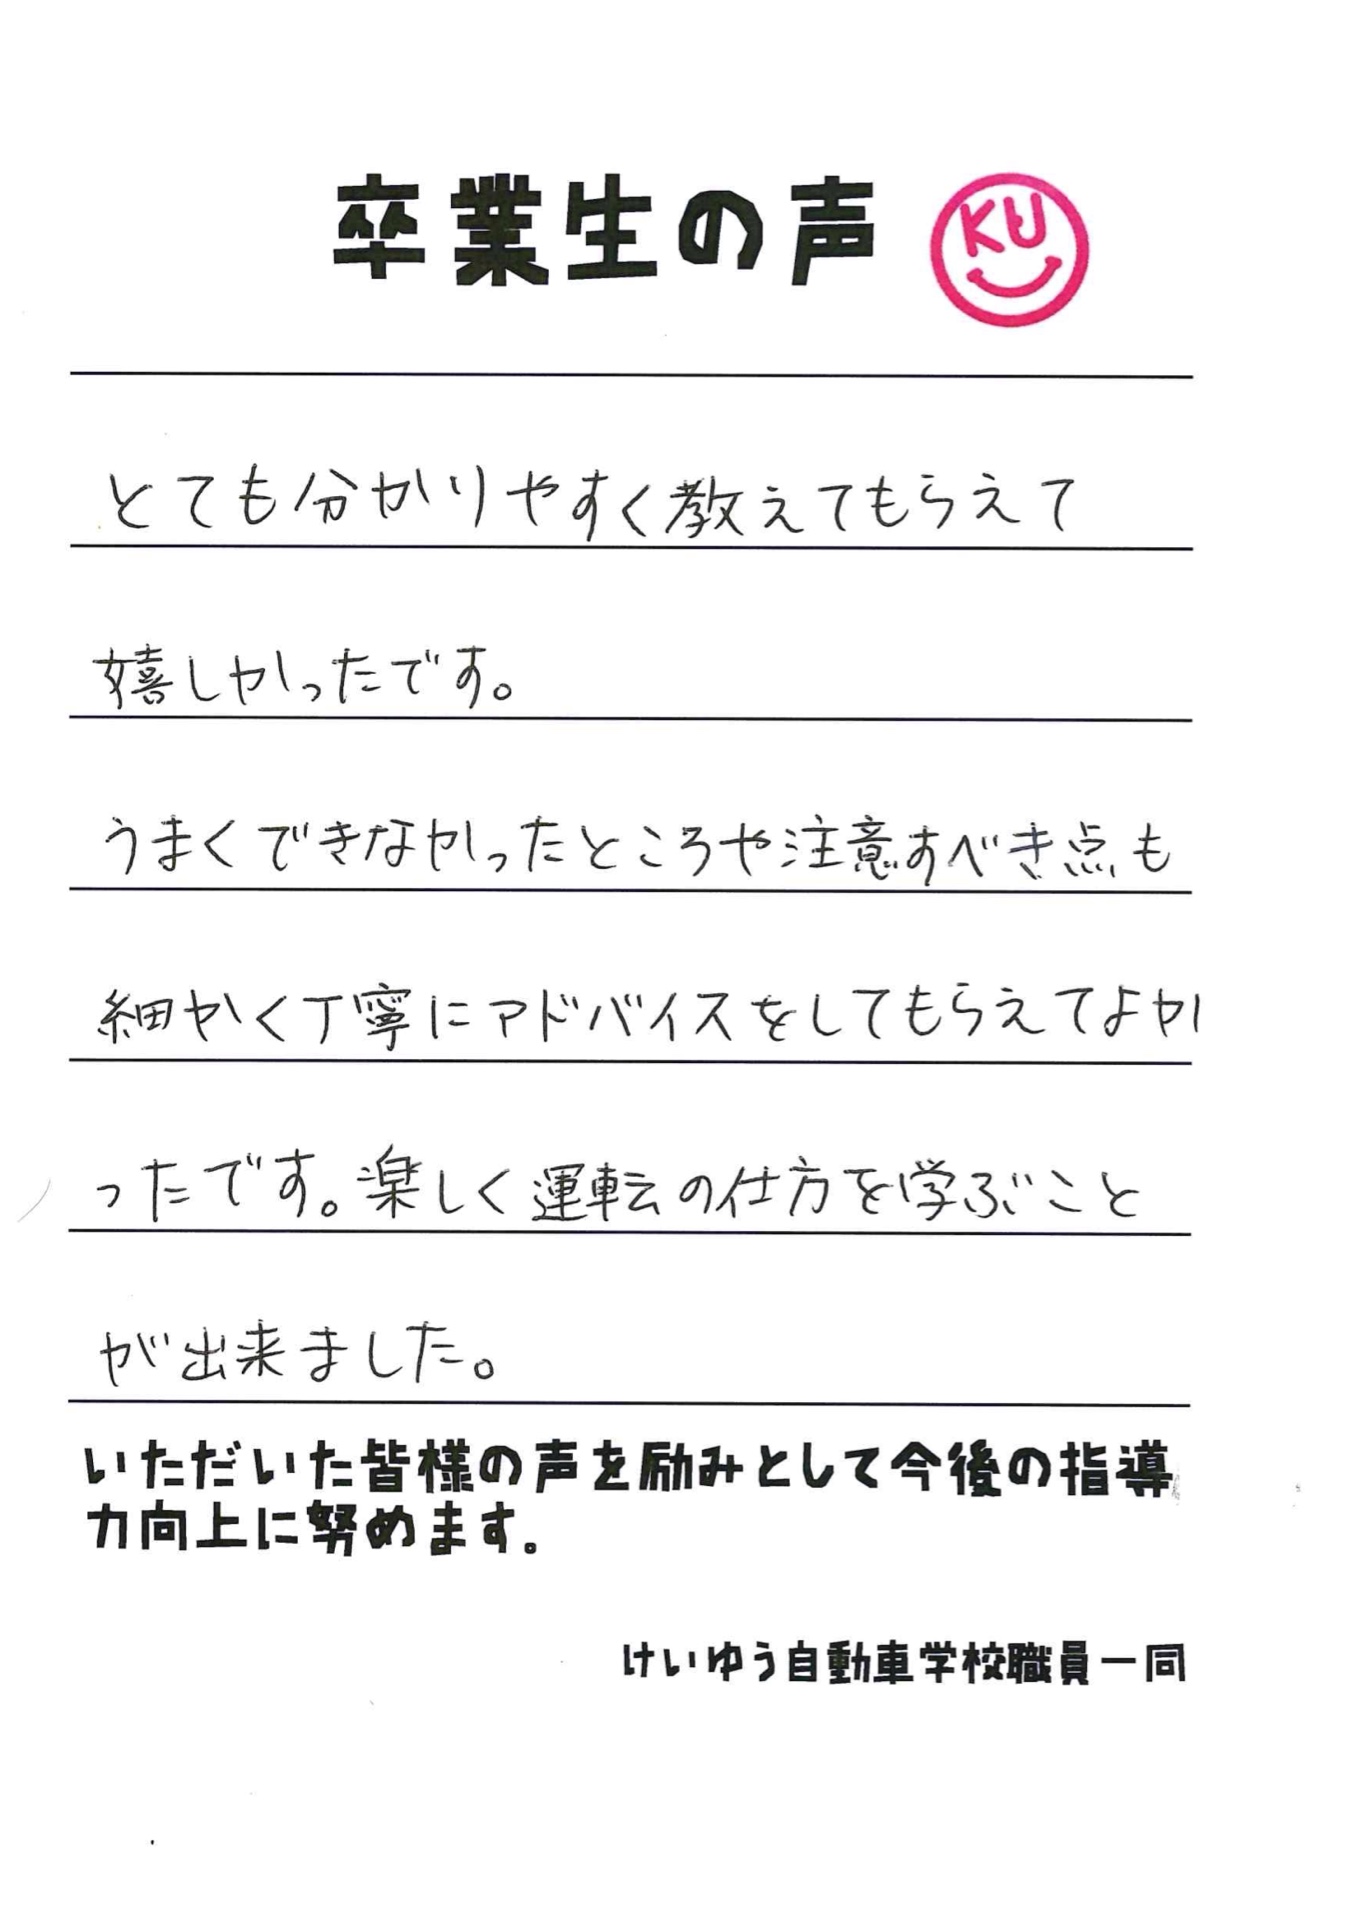 卒業生の声 KU
とても分かりやすく教えてもらえて
嬉しかったです。
うまくできなかったところや注意すべき点も
細かく丁寧にアドバイスをしてもらえてよか
ったです。楽しく運転の仕方を学ぶこと
が出来ました。
いただいた皆様の声を励みとして今後の指導
力向上に努めます。
けいゆう自動車学校職員一同